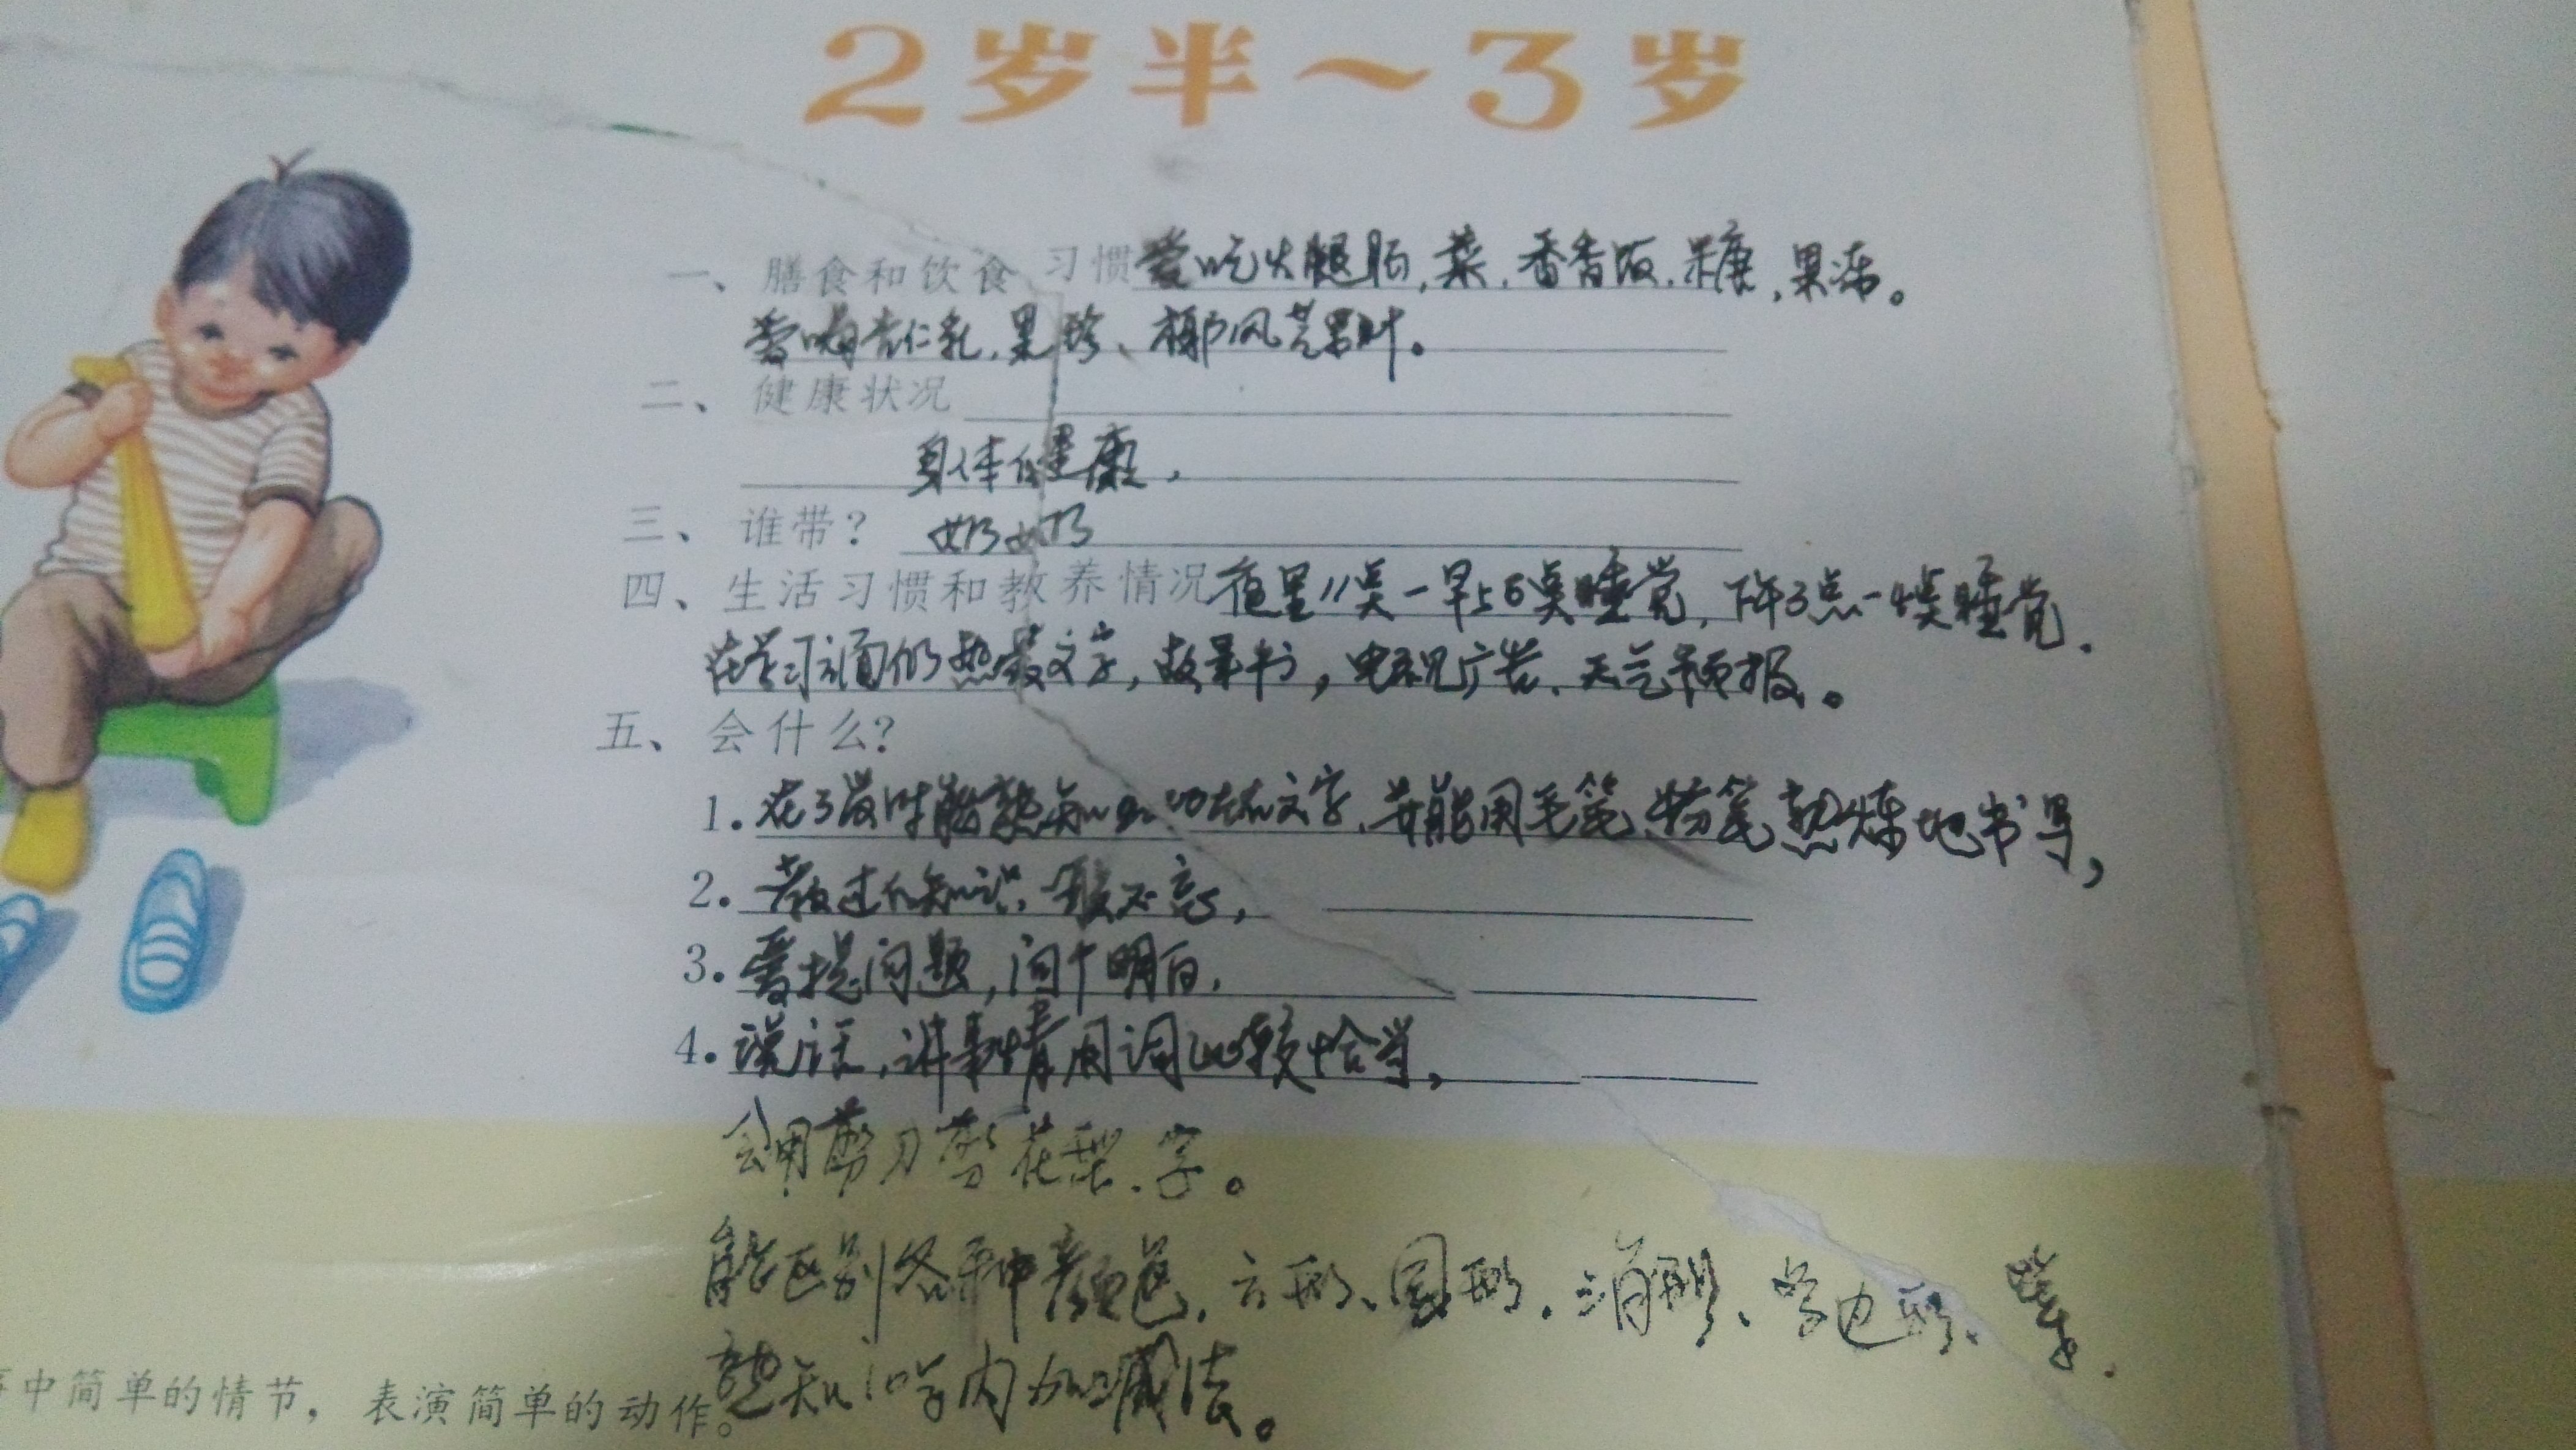 2岁半～3岁
一、膳食和饮食习惯 爱吃火腿肠,菜,香香饭,糖,果冻。
爱喝杏仁乳,果珍、椰风芒果汁。
二、健康状况
身体健康,
三、谁带？ 奶奶
四、生活习惯和教养情况 夜里11点-早上6点睡觉,下午3点-4点睡觉.
在学习方面仍热爱文字,故事书,电视广告、天气预报。
五、会什么？
1. 在3岁时能熟知 文字,并能用毛笔、粉笔熟炼地书写,
2. 教过的知识,一般不忘,
3. 爱提问题,问个明白,
4. 说话,讲事情用词比较恰当,
会用剪刀剪花型.字。
能区别各种颜色,方形、圆形.三角形、 边形、等.
熟知10以内加减法。
中简单的情节，表演简单的动作。